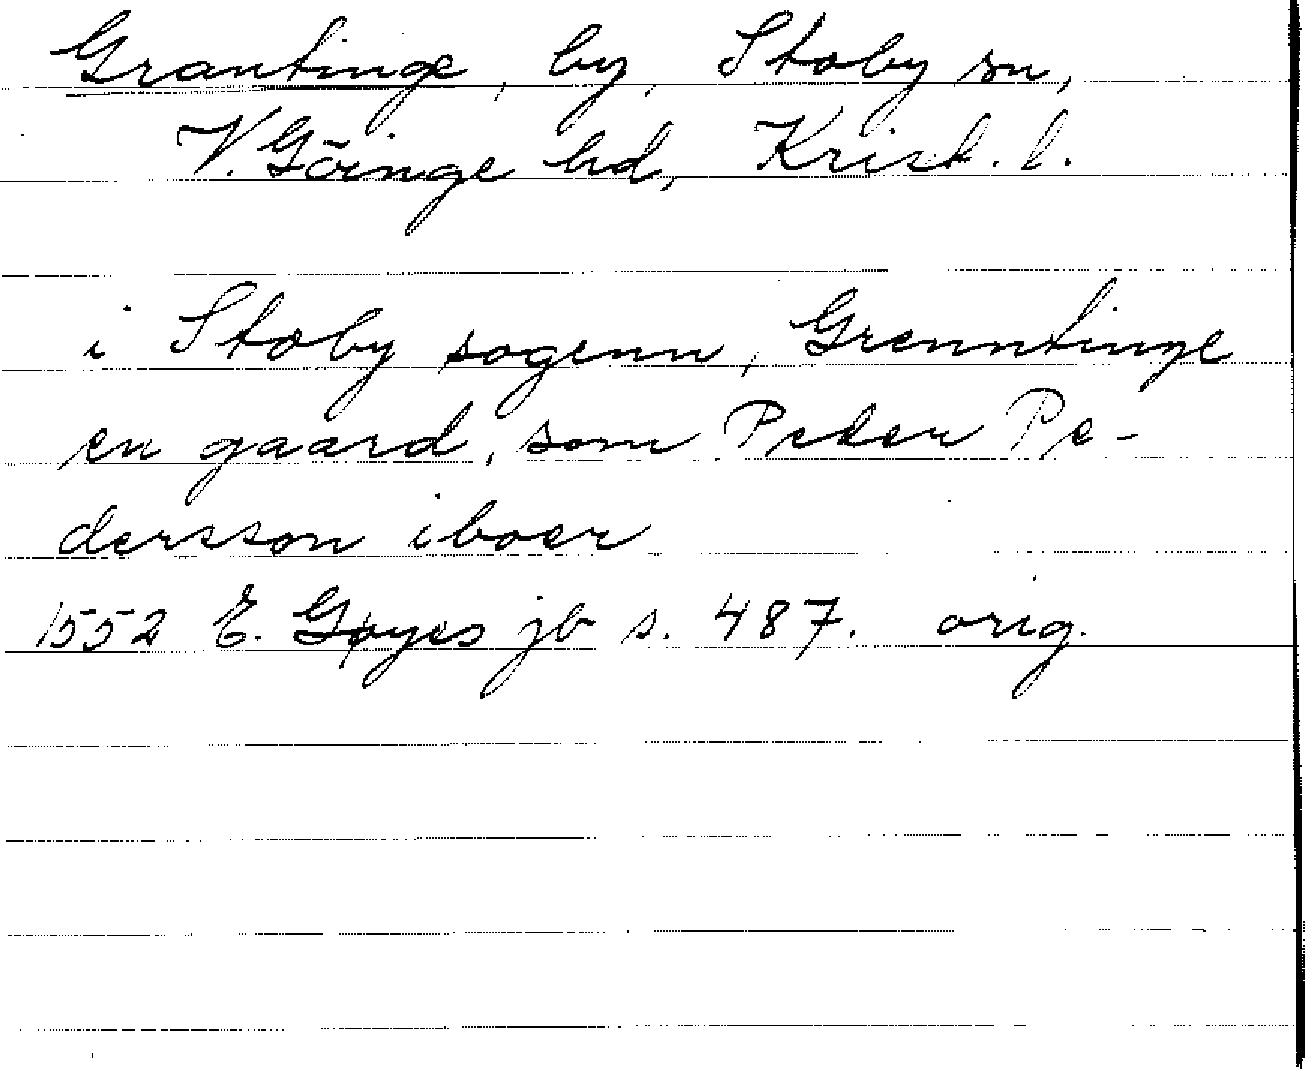 Grantinge, by, Stoby sn,
V. Göinge hd, Krist. l.
i Stoby sogenn, Grenntinge
en gaard, som Peder Pe-
dersson iboer
1552 E. Gøyes jb s. 487. orig.